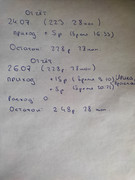 Отчёт
24.07 (223 28 мин)
приход + 5р (время 16:33)
Остаток 228р 28 мин
Отчёт
26.07 (228р 28 мин)
приход + 15р (время
+ 5р (время
Расход 0
Остаток 248р 28 мин